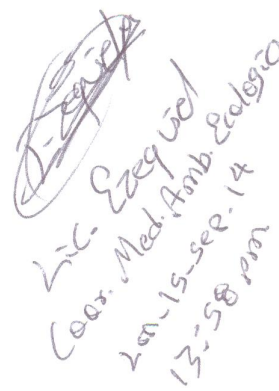 Lic. Ezequiel
Coor. Med. Amb. Ecologia
15-sep.14
13:58 pm